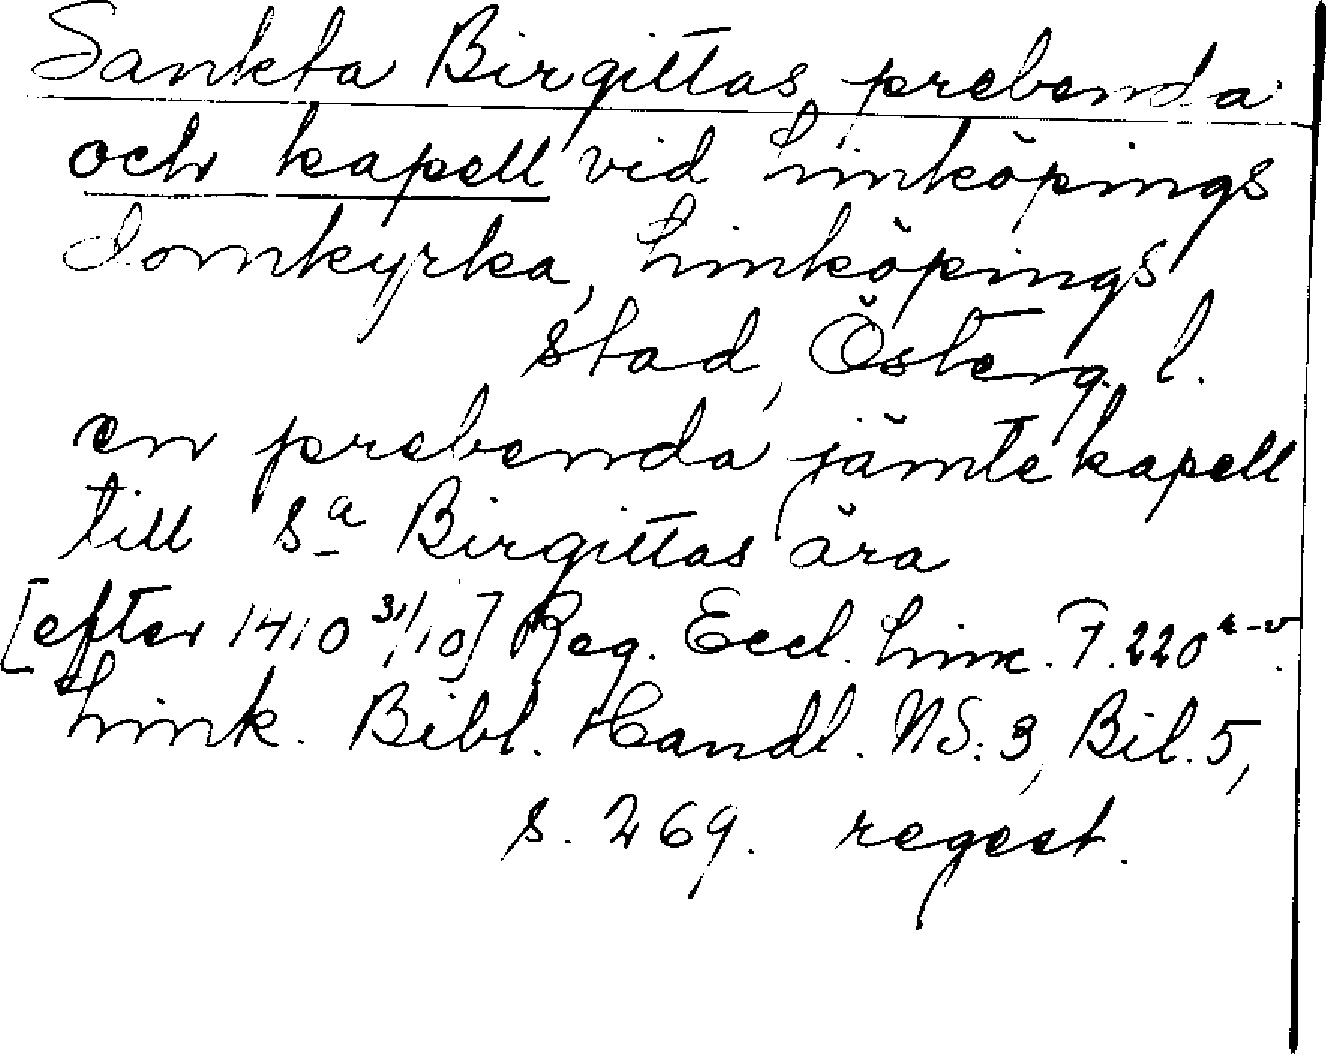 Sankta Birgittas prebenda
och kapell vid Linköpings
domkyrka, Linköpings
stad, Österg. l.
en prebenda jämte kapell
till Sa Birgittas ära
[efter 1410 31/10] Reg. Eccl. Linc. F. 220 r-v.
Link. Bibl. Handl. NS: 3, Bil. 5,
s. 269. regest.